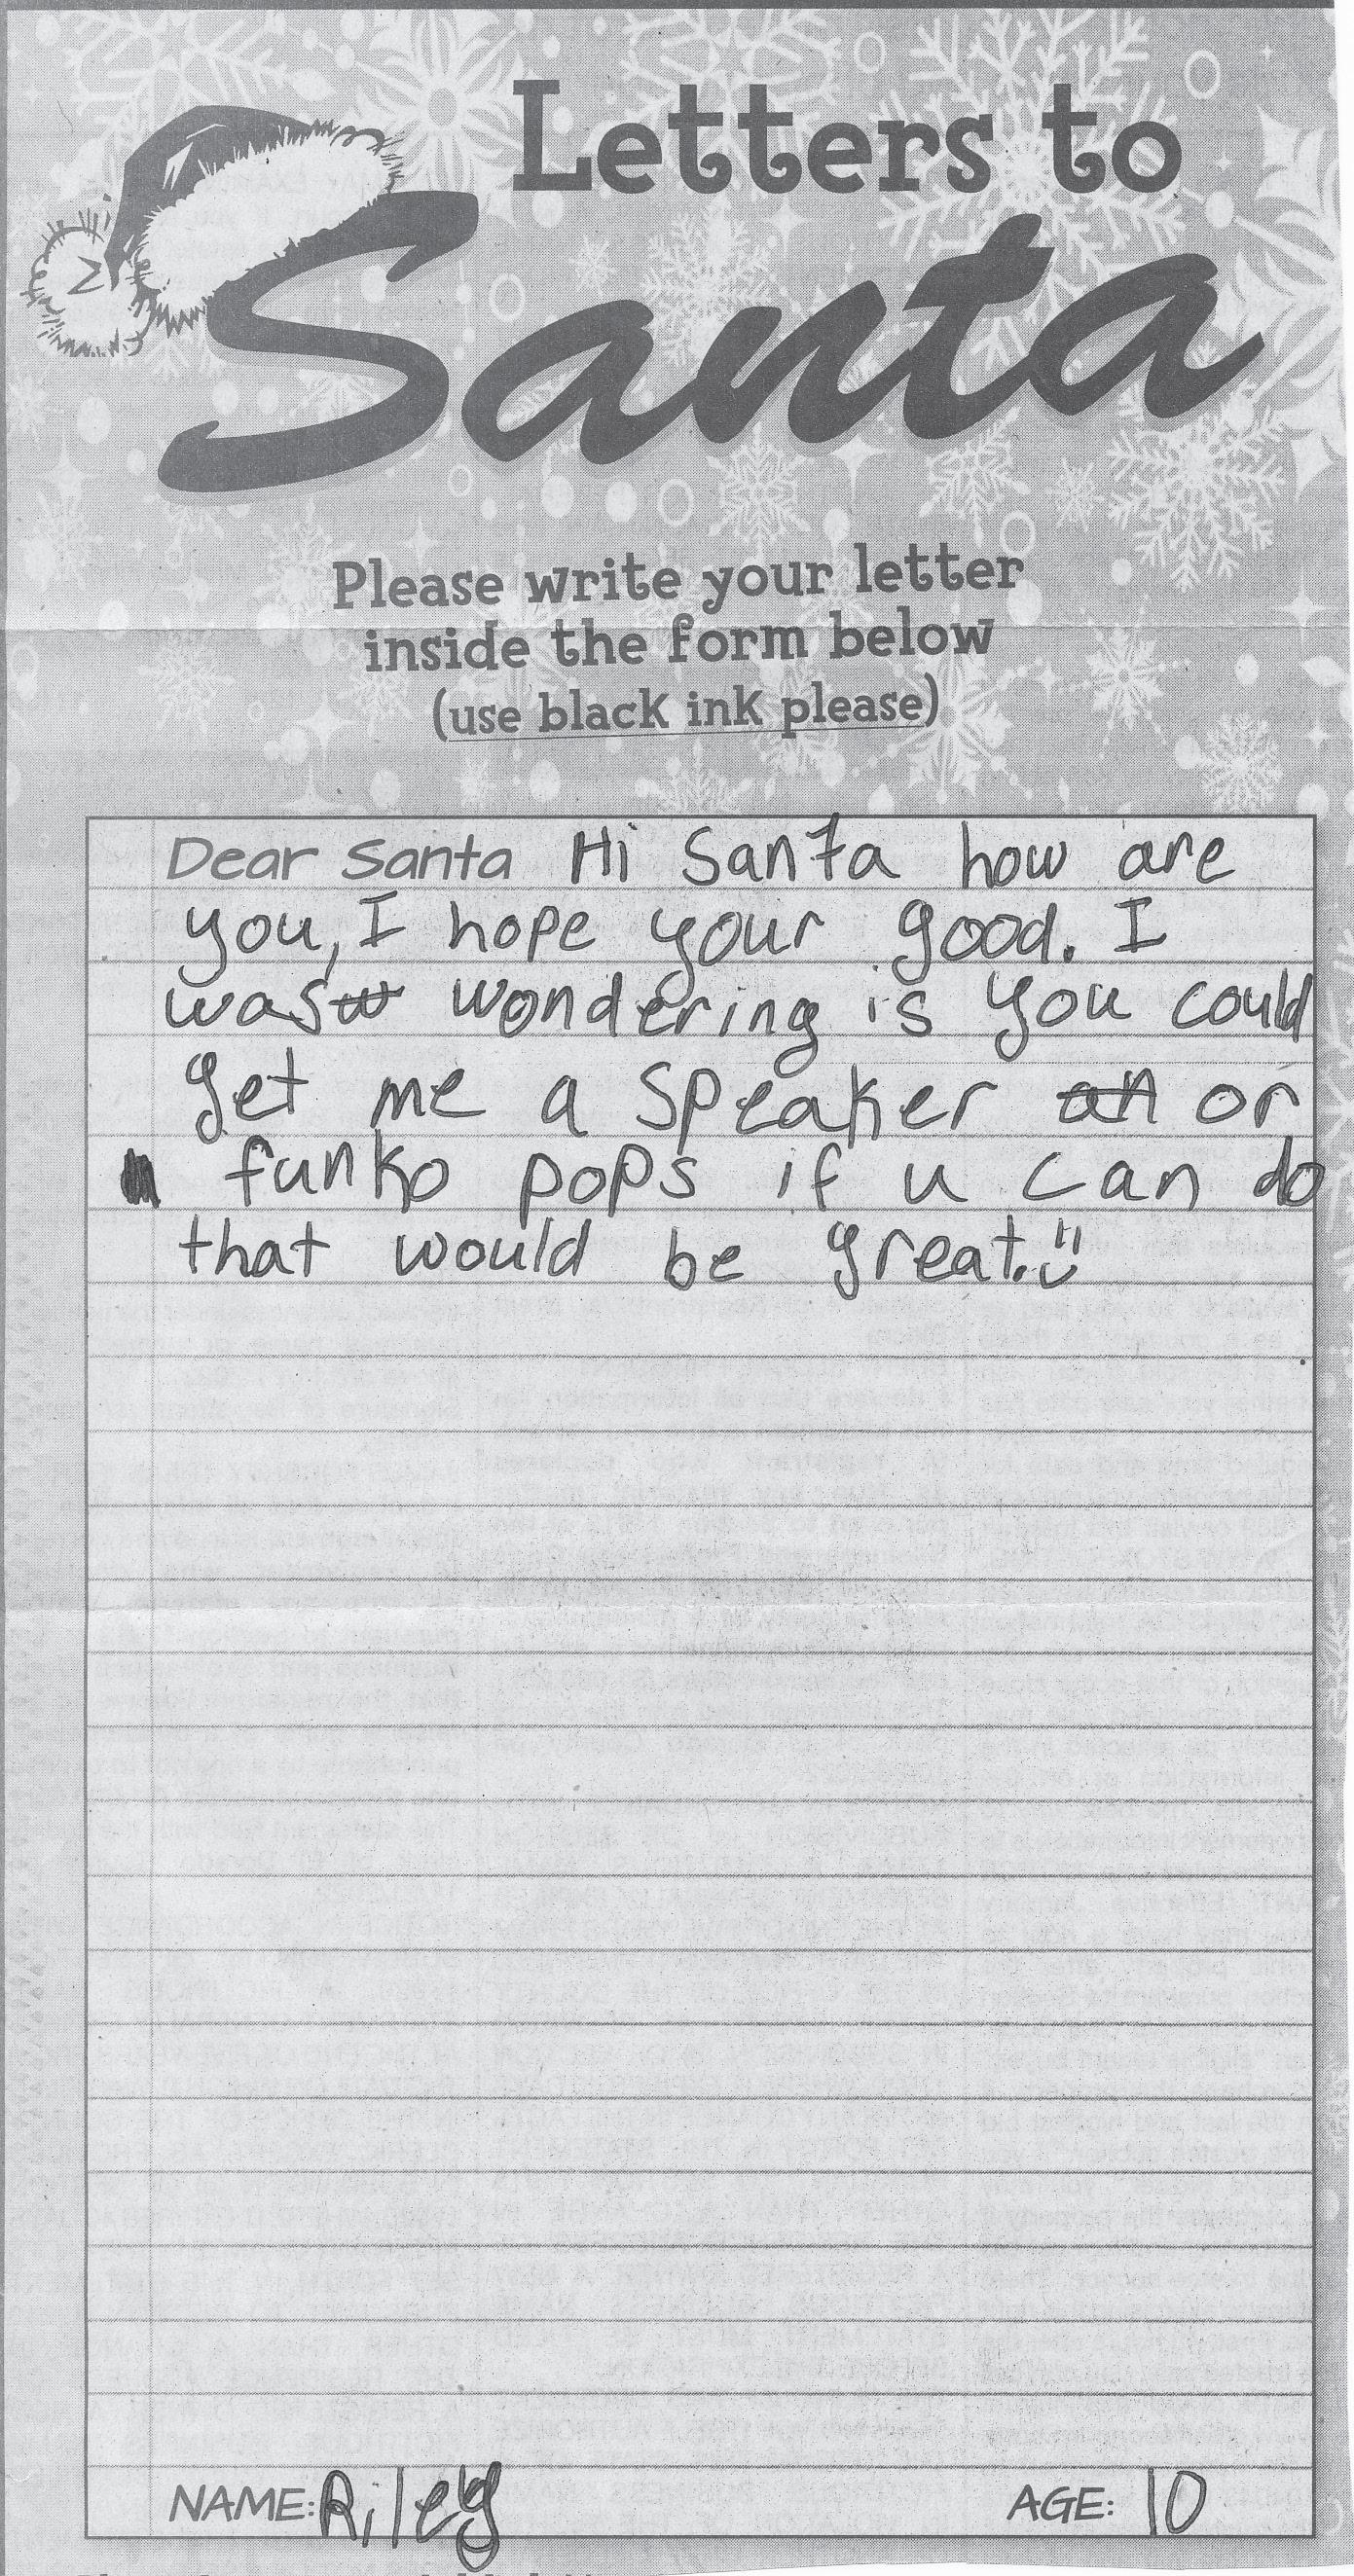 Letters to
Santa
Please write your letter
inside the form below
(use black ink please)
Dear Santa Hi Santa how are
you, I hope your good. I
was wondering is you could
get me a speaker or
funko pops if u can do
that would be great. :)
NAME: Riley AGE: 10